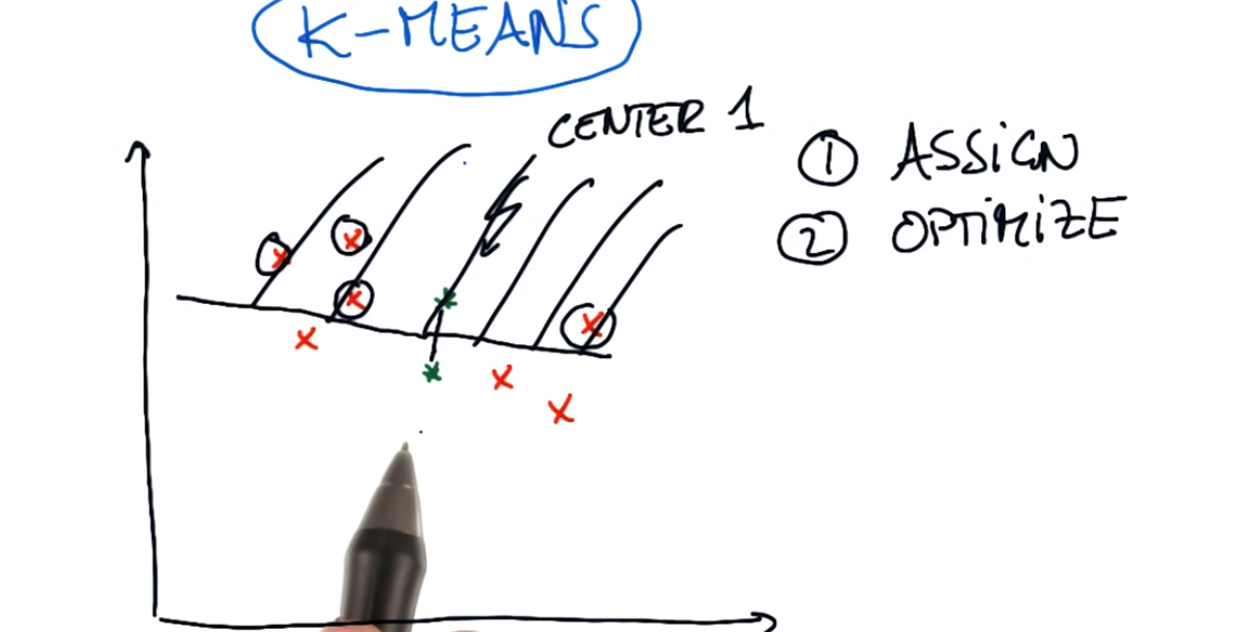 K-MEANS
CENTER 1
① ASSiGN
② OPTiMiZE